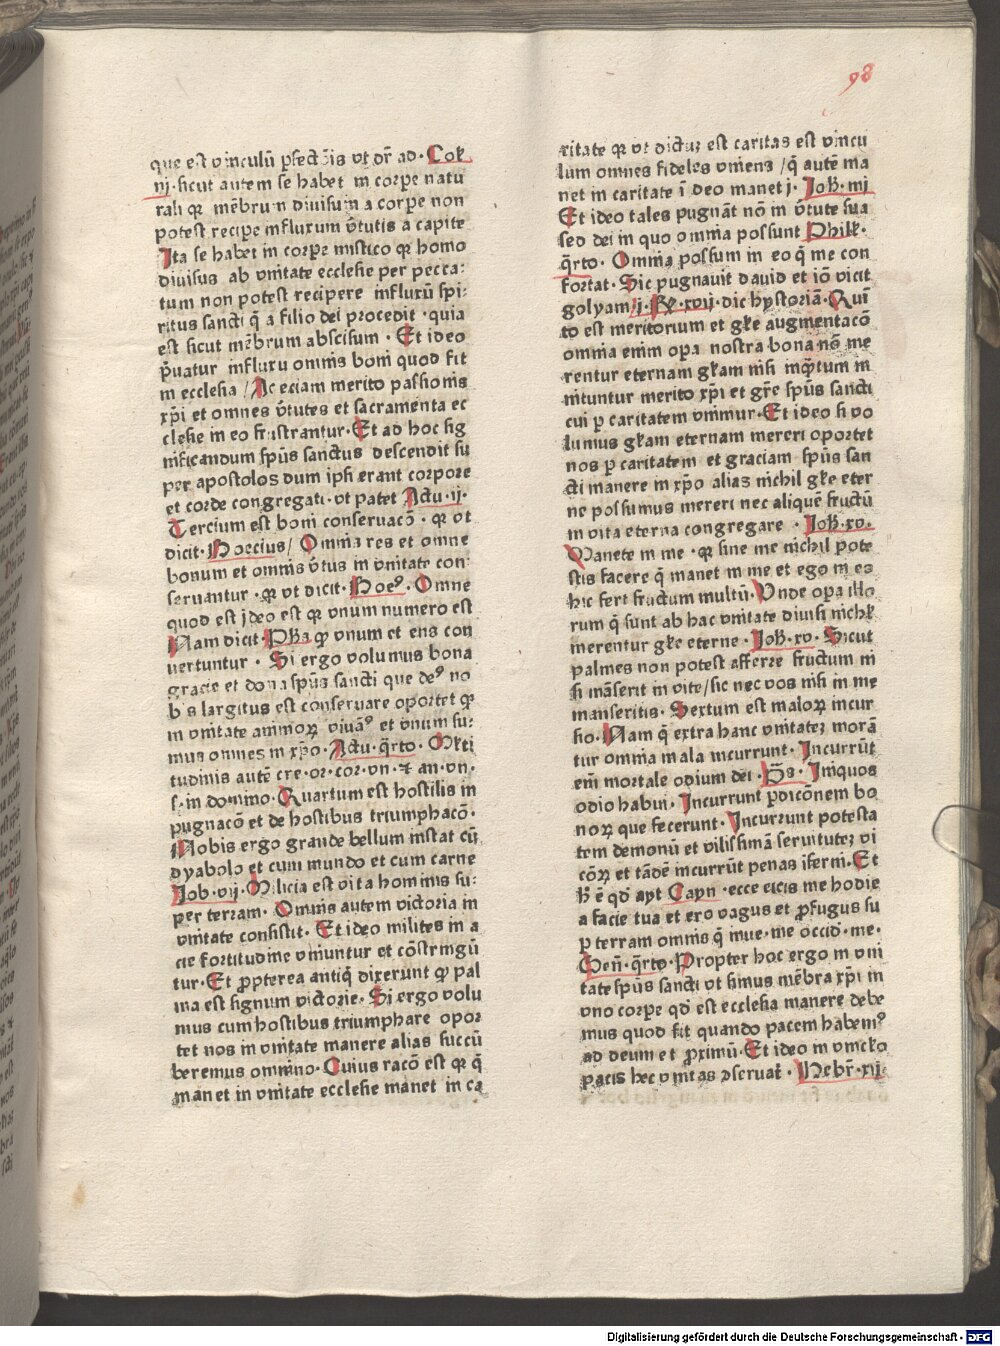 98
que est vinculū ꝑfectōis vt dr̄ ad · Col
iij · sicut autem se habet in corpe natu
rali qꝛ mēbrum diuisum a corpe non
potest recipe influxum v̄tutis a capite
Ita se habet in corpe mistico qꝛ homo
diuisus ab vnitate ecclesie per pecca:
tum non potest recipere influxū spi:
ritus sancti q̄ a filio dei procedit · quia
est sicut mēbrum abscisum · Et ideo
p̄uatur influxu omnis boni quod fit
in ecclesia / Ac eciam merito passionis
xp̄i et omnes v̄tutes et sacramenta ec
clesie in eo frustrantur · Et ad hoc sig
nificandum sp̄us sanctus descendit su
per apostolos dum ipsi erant corpore
et corde congregati · vt patet Actu · ij ·
Tercium est boni conseruacō · qꝛ vt
dicit · Boecius / Omnia res et omne
bonum et omnis v̄tus in vnitate con:
seruantur · qꝛ vt dicit · Boeꝰ · Omne
quod est ideo est qꝛ vnum numero est
Nam dicit · Phs̄ qꝙ vnum et ens con
uertuntur · Si ergo volumus bona
gracie et dona sp̄us sancti que deꝰ no
bis largitus est conseruare oportet qꝙ
in vnitate animoꝝ viuāꝰ et vnum su:
mus omnes in xp̄o · Actu · q̄rto · Mlti
tudinis autē cre · or · cor · vn · ⁊ an · vn ·
s · in domino · Quartum est hostilis in
pugnacō et de hostibus triumphacō ·
Nobis ergo grande bellum instat cū
dyabolo et cum mundo et cum carne
Job · vij · Milicia est vita hominis su:
per terram · Omnis autem victoria in
vnitate consistit · Et ideo milites in a
cie fortitudine vniuntur et cōstringū
tur · Et ꝓpterea antiq̄ dixerunt qꝙ pal
ma est signum victorie · Si ergo volu
mus cum hostibus triumphare opor
tet nos in vnitate manere alias succū
beremus omnino · Cuius racō est qꝛ q̄
manet in vnitate ecclesie manet in ca
ritate qꝛ vt dictuꝫ est caritas est vincu
lum omnes fideles vniens / q̄ autē ma
net in caritate ī deo manet j · Joh̄ · iiij
Et ideo tales pugnāt nō in v̄tute sua
sed dei in quo omnia possunt Phill̄ ·
q̄rto · Omnia possum in eo q̄ me con
fortat · Sic pugnauit dauid et iō vicit
golyam / j · R̄e · xvij · dic hystoriā · Quī
to est meritorium et gl̄e augmentacō
omnia enim oꝑa nostra bona nō me
rentur eternam gl̄am nisi inq̄ntum in
nituntur merito xp̄i et gr̄e sp̄us sancti
cui ꝑ caritatem vnimur · Et ideo si vo
lumus gl̄am eternam mereri oportet
nos ꝑ caritatem et graciam sp̄us san
cti manere in xp̄o alias nichil gl̄e eter
ne possumus mereri nec aliquē fructū
in vita eterna congregare · Joh̄ · xv ·
Manete in me · qꝛ sine me nichil pote
stis facere q̄ manet in me et ego in eo
hic fert fructum multū · Vnde oꝑa illo
rum q̄ sunt ab hac vnitate diuisi nichil
merentur gl̄e eterne · Joh̄ · xv · Sicut
palmes non potest afferre fructum ni
si māserit in vite / sic nec vos nisi in me
manseritis · Sextum est maloꝝ incur
sio · Nam q̄ extra hanc vnitateꝫ morā
tur omnia mala incurrunt · Incurrūt
em̄ mortale odium dei · P̄s · Iniquos
odio habui · Incurrunt ꝑdicōnem bo
noꝝ que fecerunt · Incurrunt potesta
tem demonū et vilissimā seruituteꝫ vi
cōꝝ et tādē incurrūt penas īferni · Et
h̄ ē qd̄ ayt Cayn · ecce eicis me hodie
a facie tua et ero vagus et ꝓfugus su
ꝑ terram omnis q̄ inue · me occid̄ · me ·
Gen̄ · q̄rto · Propter hoc ergo in vni
tate sp̄us sancti vt simus mēbra xp̄i in
vno corpe qd̄ est ecclesia manere debe
mus quod fit quando pacem habemꝰ
ad deum et ꝓximū · Et ideo in vinclo
pacis hec vnitas ꝯseruat̄ · Hebr̄ · xij ·
Digitalisierung gefördert durch die Deutsche Forschungsgemeinschaft · DFG